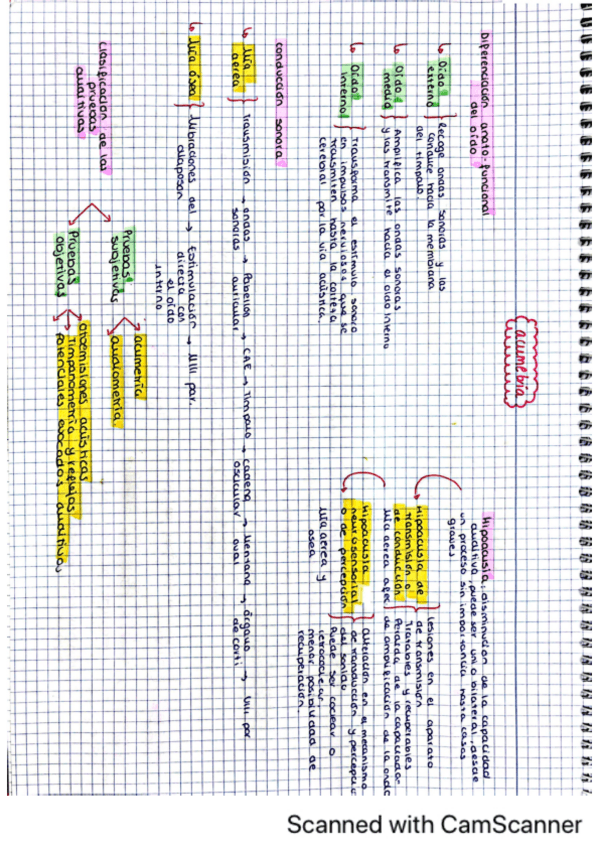 acumetria
Diferenciación anato-funcional
del oído
Oído
externo
Recoge ondas sonoras y las
conduce hacia la membrana
del tímpano.
Oído
medio
Amplifica las ondas sonoras
y las transmite hacia el oído interno
Oído
interno
Transforma el estímulo sonoro
en impulsos nerviosos que se
transmiten hasta la corteza
cerebral por la vía acústica.
Hipoacusia: disminución de la capacidad
auditiva, puede ser uni o bilateral, desde
un proceso sin importancia hasta casos
graves
Hipoacusia de
transmisión o
de conducción
vía aerea
Lesiones en el aparato
de transmisión
Tratables y recuperables
Pérdida de la capacidad
de amplificación de la onda
Hipoacusia
neurosensorial
o de percepción
vía aerea y
osea
alteración en el mecanismo
de transducción y percepción
del sonido
Puede ser coclear o
retrococlear,
menor posibilidad de
recuperación.
conducción sonora
Vía
aerea
Transmisión → ondas → Pabellón → CAE → Tímpano → cadena → Ventana → órgano → VIII par
sonoras auricular osicular oval de Corti
Vía ósea
Vibraciones del → Estimulación → VIII par.
diapason directa con
el oído
interno
clasificación de las
pruebas
auditivas
Pruebas
subjetivas
acumetría
audiometría.
Pruebas
objetivas
otoemisiones acústicas
Timpanometría y reflejos
Potenciales evocados auditivos
Scanned with CamScanner